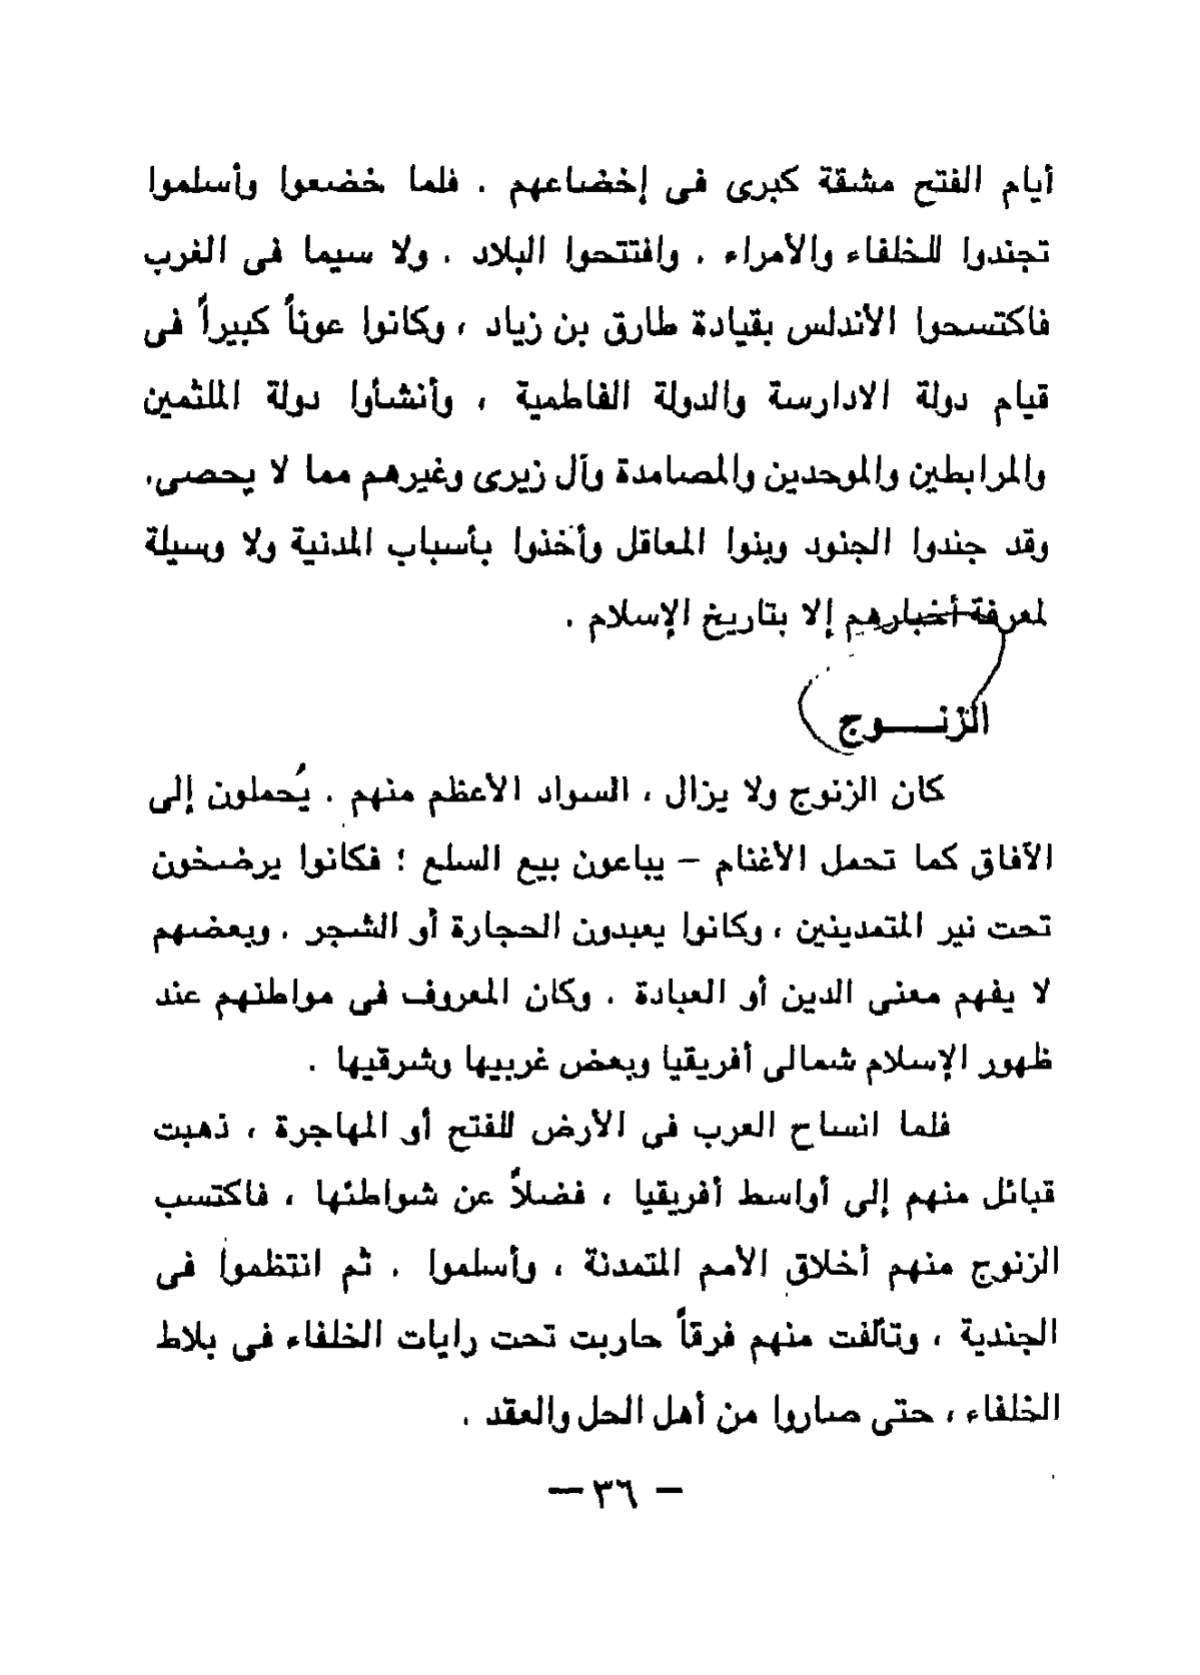 أيام الفتح مشقة كبرى فى إخضاعهم . فلما خضعوا وأسلموا
تجندوا للخلفاء والأمراء . وافتتحوا البلاد . ولا سيما فى الغرب
فاكتسحوا الأندلس بقيادة طارق بن زياد ، وكانوا عوناً كبيراً فى
قيام دولة الادارسة والدولة الفاطمية ، وأنشأوا دولة الملثمين
والمرابطين والموحدين والمصامدة وآل زيرى وغيرهم مما لا يحصى.
وقد جندوا الجنود وبنوا المعاقل وأخذوا بأسباب المدنية ولا وسيلة
لمعرفة أخبارهم إلا بتاريخ الإسلام .
الزنـــوج
كان الزنوج ولا يزال ، السواد الأعظم منهم . يُحملون إلى
الآفاق كما تحمل الأغنام – يباعون بيع السلع ؛ فكانوا يرضخون
تحت نير المتمدينين ، وكانوا يعبدون الحجارة أو الشجر . وبعضهم
لا يفهم معنى الدين أو العبادة . وكان المعروف فى مواطنهم عند
ظهور الإسلام شمالى أفريقيا وبعض غربيها وشرقيها .
فلما انساح العرب فى الأرض للفتح أو المهاجرة ، ذهبت
قبائل منهم إلى أواسط أفريقيا ، فضلاً عن شواطئها ، فاكتسب
الزنوج منهم أخلاق الأمم المتمدنة ، وأسلموا . ثم انتظموا فى
الجندية ، وتألفت منهم فرقاً حاربت تحت رايات الخلفاء فى بلاط
الخلفاء ، حتى صاروا من أهل الحل والعقد .
— ٣٦ —